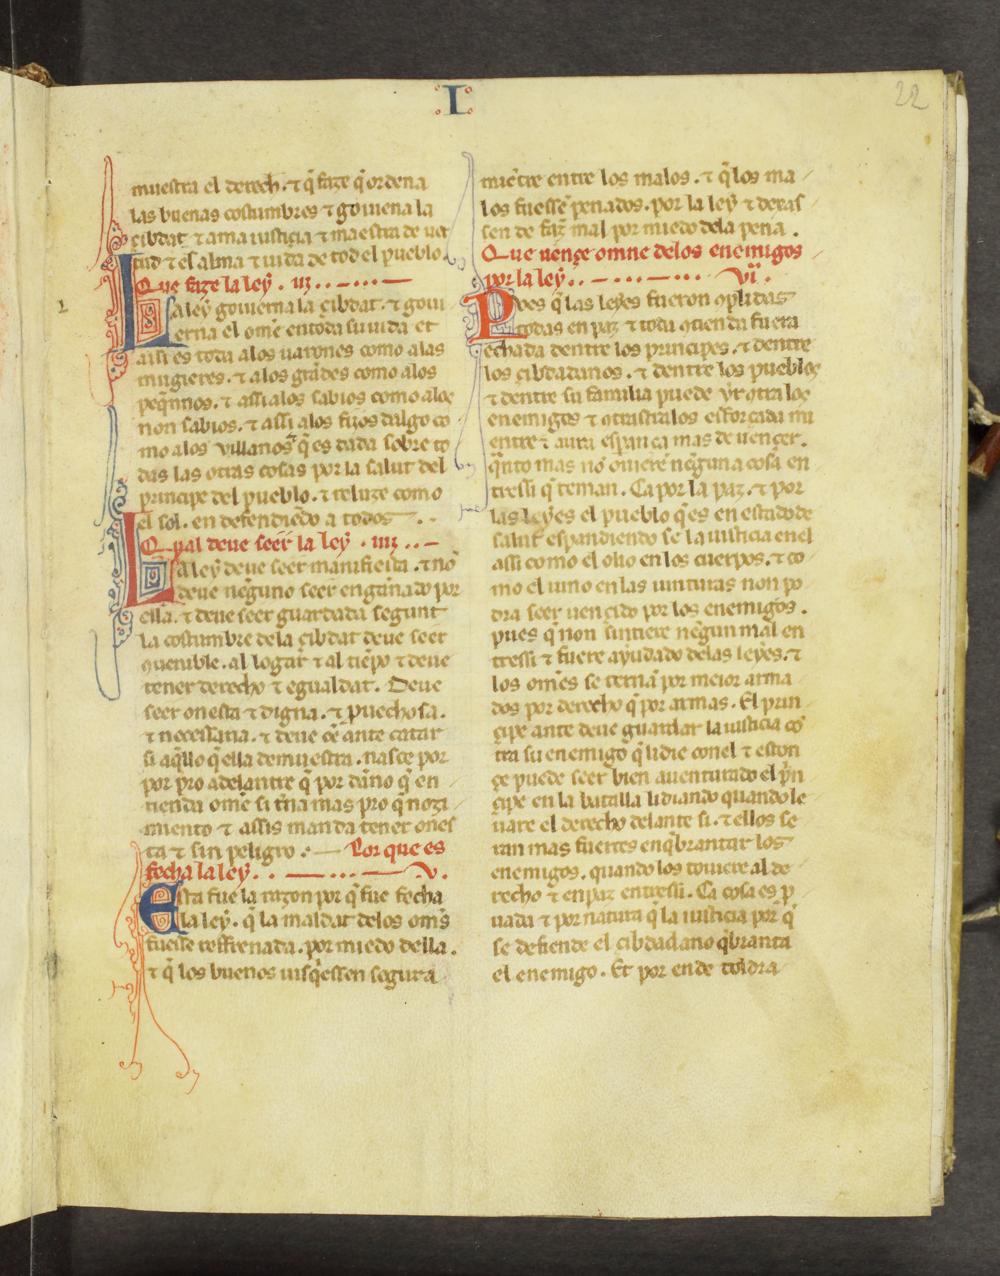 I
22
muestra el derech. ⁊ q̃ faze q̃ ordena
las buenas costumbres ⁊ gouiena la
çibdat ⁊ ama iustiçia ⁊ maestra de uer
tud ⁊ es alma ⁊ uida de tod el pueblo
Que faze la ley . iij
La ley gouierna la çibdat. ⁊ goui
erna el om̃e en toda su uida et
assi es toda a los uarones como a las
mugieres. ⁊ a los grãdes como a los
peq̃nnos. ⁊ assi a los sabios como a los
non sabios. ⁊ assi a los fijos dalgo co
mo a los villanos q̃ es dada sobre to
das las otras cosas por la salut del
principe del pueblo. ⁊ reluze como
el sol. en defendiẽdo a todos
Qual deue seer la ley . iiij
La ley deue seer manifiesta . ⁊ nõ
deue nẽguno seer engannado por
ella. ⁊ deue seer guardada segunt
la costumbre de la çibdat deue seer
quenible. al logar ⁊ al tiẽpo ⁊ deue
tener derecho ⁊ egualdat. Deue
seer onesta ⁊ digna. ⁊ puechosa.
⁊ necessaria. ⁊ deue õe ante catar
si aq̃llo q̃ ella demuestra. nasce por
por pro adelantre q̃ por dãno q̃ en
tienda om̃e si
miento ⁊ assis manda tener ones
ta ⁊ sin peligro . Por que es
fecha la ley . v.
Esta fue la razon por q̃ fue fecha
la ley. q̃ la maldat de los om̃s
fuesse reffrenada. por miedo della.
⁊ q̃ los buenos uisq̃essen segura
miẽtre entre los malos. ⁊ q̃ los ma
los fuessẽ penados. por la ley ⁊ dexas
sen de faz̃ mal por miedo de la pena .
Que uençe omne de los enemigos
por la ley . vi.
Pves q̃ las leyes fueron
todas en paz ⁊ toda fuera
echada dentre los principes. ⁊ dentre
los çibdadanos. ⁊ dentre los pueblos
⁊ dentre su familia puede yr los
enemigos ⁊ esforçada mi
entre ⁊ aura esperança mas de uençer.
q̃nto mas nõ ouierẽ nẽguna cosa en
tressi q̃ teman. Ca por la paz. ⁊ por
las leyes el pueblo q̃ es en estado de
salut espandiendo se la iusticia en el
assi como el olio en los cuerpos. ⁊ co
mo el uino en las iunturas non po
dra seer uençido por los enemigos .
pues q̃ non sintiere nẽgun mal en
tressi ⁊ fuere ayudado de las leyes. ⁊
los om̃es se por meior arma
dos por derecho q̃ por armas. El prin
çipe ante deue guardar la iusticia cõ
tra su enemigo q̃ lidie con el ⁊ eston
çe puede seer bien auenturado el
çipe en la batalla lidiando quando le
uare el derecho delante si. ⁊ ellos se
ran mas fuertes en q̃brantar los
enemigos. quando los touiere al de
recho ⁊ en paz entressi. Ca cosa es p
uada ⁊ por natura q̃ la iusticia por q̃
se defiende el çibdadano q̃branta
el enemigo . Et por ende toldra